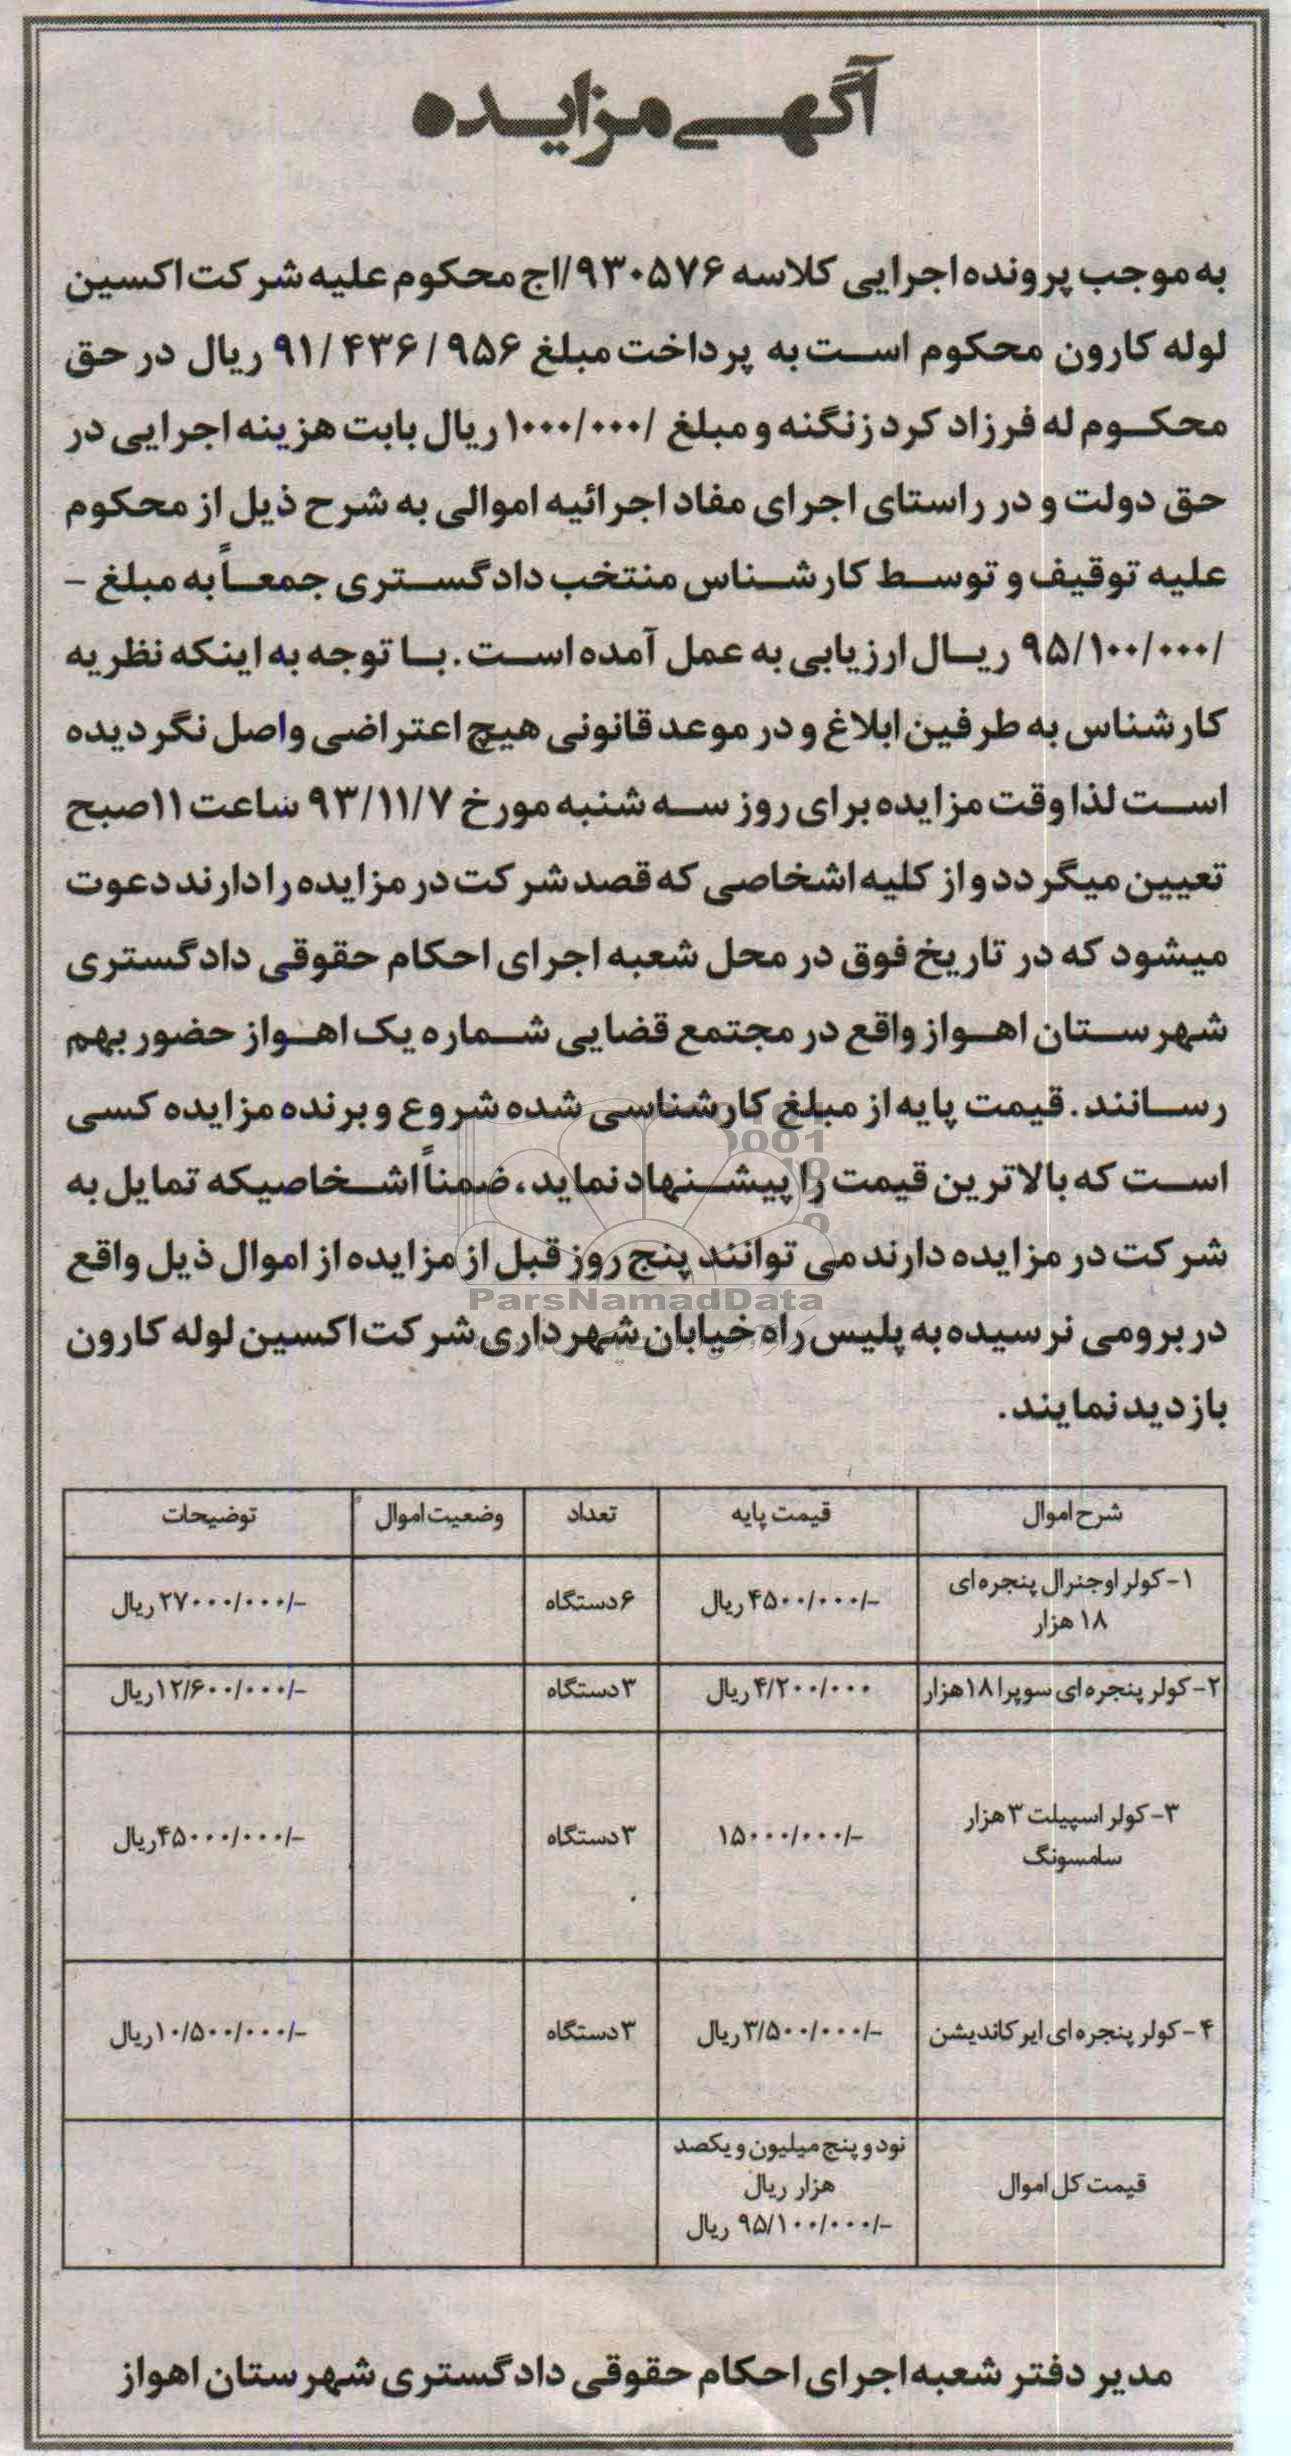 آگهی مزایده
به موجب پرونده اجرایی کلاسه ۹۳۰۵۷۶/اج محکوم علیه شرکت اکسین
لوله کارون محکوم است به پرداخت مبلغ ۹۱/۴۳۶/۹۵۶ ریال در حق
محکوم له فرزاد کرد زنگنه و مبلغ /۱۰۰۰/۰۰۰ ریال بابت هزینه اجرایی در
حق دولت و در راستای اجرای مفاد اجرائیه اموالی به شرح ذیل از محکوم
علیه توقیف و توسط کارشناس منتخب دادگستری جمعاً به مبلغ -
/۹۵/۱۰۰/۰۰۰ ریال ارزیابی به عمل آمده است. با توجه به اینکه نظریه
کارشناس به طرفین ابلاغ و در موعد قانونی هیچ اعتراضی واصل نگردیده
است لذا وقت مزایده برای روز سه شنبه مورخ ۹۳/۱۱/۷ ساعت ۱۱صبح
تعیین میگردد و از کلیه اشخاصی که قصد شرکت در مزایده را دارند دعوت
میشود که در تاریخ فوق در محل شعبه اجرای احکام حقوقی دادگستری
شهرستان اهواز واقع در مجتمع قضایی شماره یک اهواز حضور بهم
رسانند. قیمت پایه از مبلغ کارشناسی شده شروع و برنده مزایده کسی
است که بالاترین قیمت را پیشنهاد نماید، ضمناً اشخاصیکه تمایل به
شرکت در مزایده دارند می توانند پنج روز قبل از مزایده از اموال ذیل واقع
ParsNamadData
در برومی نرسیده به پلیس راه خیابان شهرداری شرکت اکسین لوله کارون
بازدید نمایند.
شرح اموال قیمت پایه تعداد وضعیت اموال توضیحات
۱- کولر اوجنرال پنجره ای
۱۸ هزار
-/۴۵۰۰/۰۰۰ ریال ۶ دستگاه -/۲۷۰۰۰/۰۰۰ ریال
۲- کولر پنجره ای سوپرا ۱۸هزار ۴/۲۰۰/۰۰۰ ریال ۳ دستگاه -/۱۲/۶۰۰/۰۰۰ریال
۳- کولر اسپیلت ۳ هزار
سامسونگ
-/۱۵۰۰۰/۰۰۰ ۳ دستگاه -/۴۵۰۰۰/۰۰۰ریال
۴- کولر پنجره ای ایر کاندیشن -/۳/۵۰۰/۰۰۰ ریال ۳ دستگاه -/۱۰/۵۰۰/۰۰۰ریال
قیمت کل اموال
نود و پنج میلیون و یکصد
هزار ریال
-/۹۵/۱۰۰/۰۰۰ ریال
مدیر دفتر شعبه اجرای احکام حقوقی دادگستری شهرستان اهواز